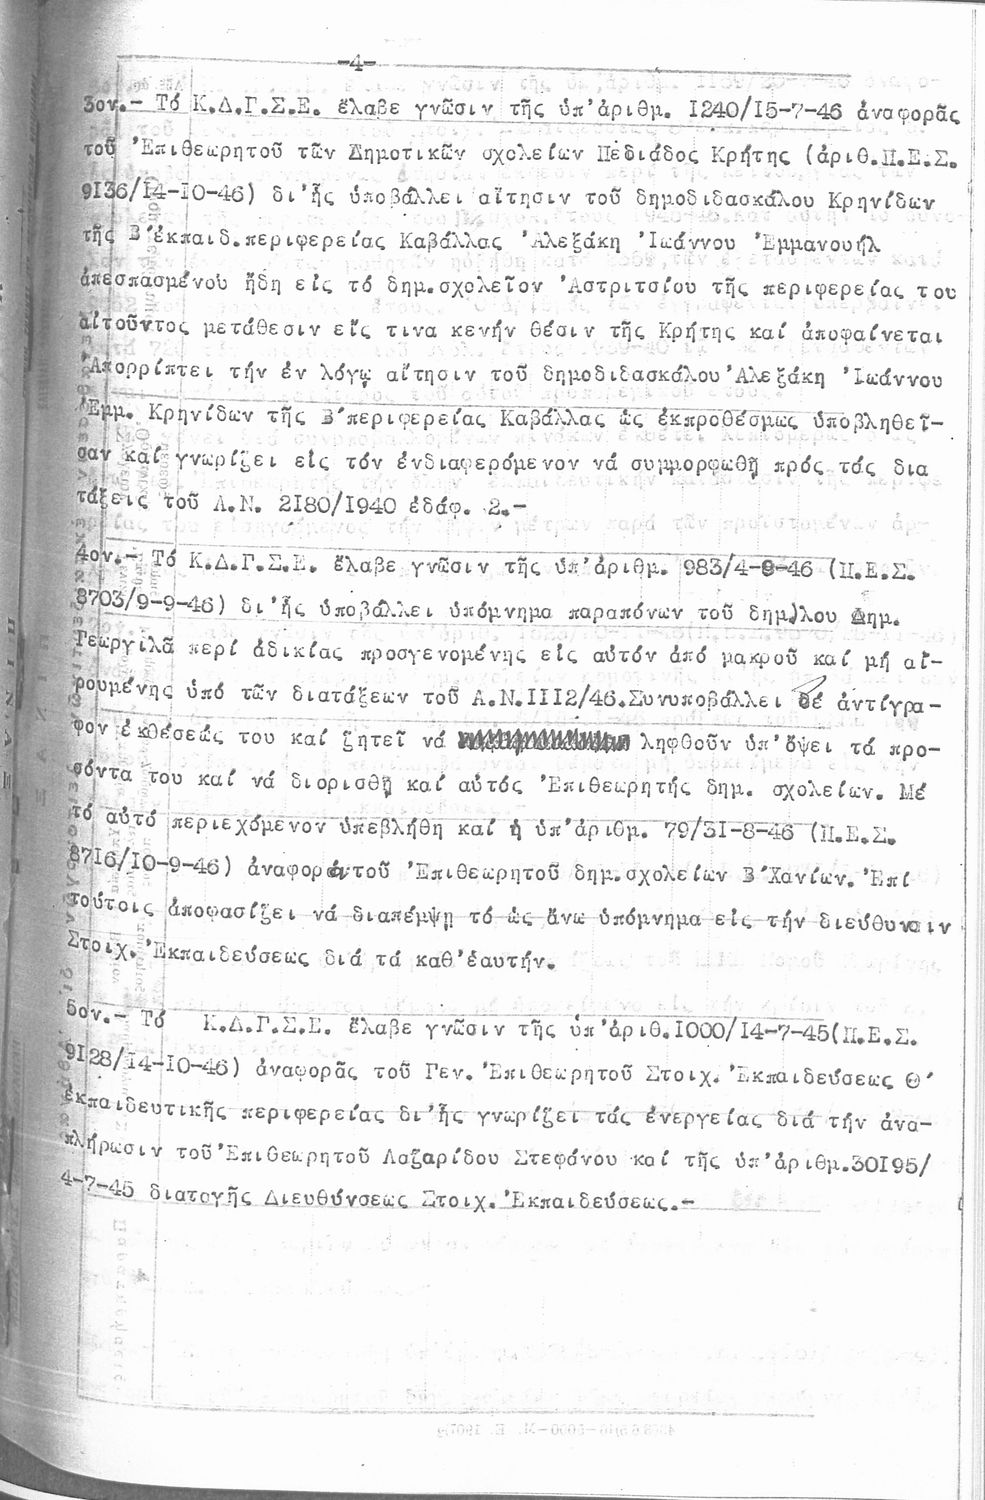 -4-
3ον.- Τό Κ.Δ.Γ.Σ.Ε. ἔλαβε γνῶσιν τῆς ὑπ'ἀριθμ. I240/I5-7-46 ἀναφορᾶς
τοῦ 'Επιθεωρητοῦ τῶν Δημοτικῶν σχολείων Πεδιάδος Κρήτης (ἀριθ.Π.Ε.Σ.
9I36/I4-IO-46) δι'ἧς ὑποβάλλει αἴτησιν τοῦ δημοδιδασκάλου Κρηνίδων
τῆς Β'ἐκπαιδ.περιφερείας Καβάλλας 'Αλεξάκη 'Ιωάννου 'Εμμανουήλ
ἀπεσπασμένου ἤδη εἰς τό δημ.σχολεῖον 'Αστριτσίου τῆς περιφερείας του
αἰτοῦντος μετάθεσιν εἴς τινα κενήν θέσιν τῆς Κρήτης καί ἀποφαίνεται
'Απορρίπτει τήν ἐν λόγῳ αἴτησιν τοῦ δημοδιδασκάλου'Αλεξάκη 'Ιωάννου
'Εμμ. Κρηνίδων τῆς Β'περιφερείας Καβάλλας ὡς ἐκπροθέσμως ὑποβληθεῖ-
σαν καί γνωρίζει εἰς τόν ἐνδιαφερόμενον νά συμμορφωθῇ πρός τάς δια
τάξεις τοῦ Α.Ν. 2I80/I940 ἐδάφ. 2.-
4ον.- Τό Κ.Δ.Γ.Σ.Ε. ἔλαβε γνῶσιν τῆς ὑπ'ἀριθμ. 983/4-9-46 (Π.Ε.Σ.
8703/9-9-46) δι'ἧς ὑποβάλλει ὑπόμνημα παραπόνων τοῦ δημ)λου Δημ.
Γεωργιλᾶ περί ἀδικίας προσγενομένης εἰς αὐτόν ἀπό μακροῦ καί μή αἰ-
ρουμένης ὑπό τῶν διατάξεων τοῦ Α.Ν.III2/46.Συνυποβάλλει δέ ἀντίγρα-
φον ἐκθέσεώς του καί ζητεῖ νά ληφθοῦν ὑπ'ὄψει τά προ-
σόντα του καί νά διορισθῇ καί αὐτός 'Επιθεωρητής δημ. σχολείων. Μέ
τό αὐτό περιεχόμενον ὑπεβλήθη καί ἡ ὑπ'ἀριθμ. 79/3I-8-46 (Π.Ε.Σ.
87I6/IO-9-46) ἀναφορά τοῦ 'Επιθεωρητοῦ δημ.σχολείων Β'Χανίων.'Επί
τούτοις ἀποφασίζει νά διαπέμψῃ τό ὡς ἄνω ὑπόμνημα εἰς τήν διεύθυνσιν
Στοιχ.'Εκπαιδεύσεως διά τά καθ'ἑαυτήν.
5ον.- Τό Κ.Δ.Γ.Σ.Ε. ἔλαβε γνῶσιν τῆς ὑπ'ἀριθ.I000/I4-7-45(Π.Ε.Σ.
9I28/I4-IO-46) ἀναφορᾶς τοῦ Γεν.'Επιθεωρητοῦ Στοιχ.'Εκπαιδεύσεως Θ'
ἐκπαιδευτικῆς περιφερείας δι'ἧς γνωρίζει τάς ἐνεργείας διά τήν ἀνα-
πλήρωσιν τοῦ'Επιθεωρητοῦ Λαζαρίδου Στεφάνου καί τῆς ὑπ'ἀριθμ.30I95/
4-7-45 διαταγῆς Διευθύνσεως Στοιχ.'Εκπαιδεύσεως.-